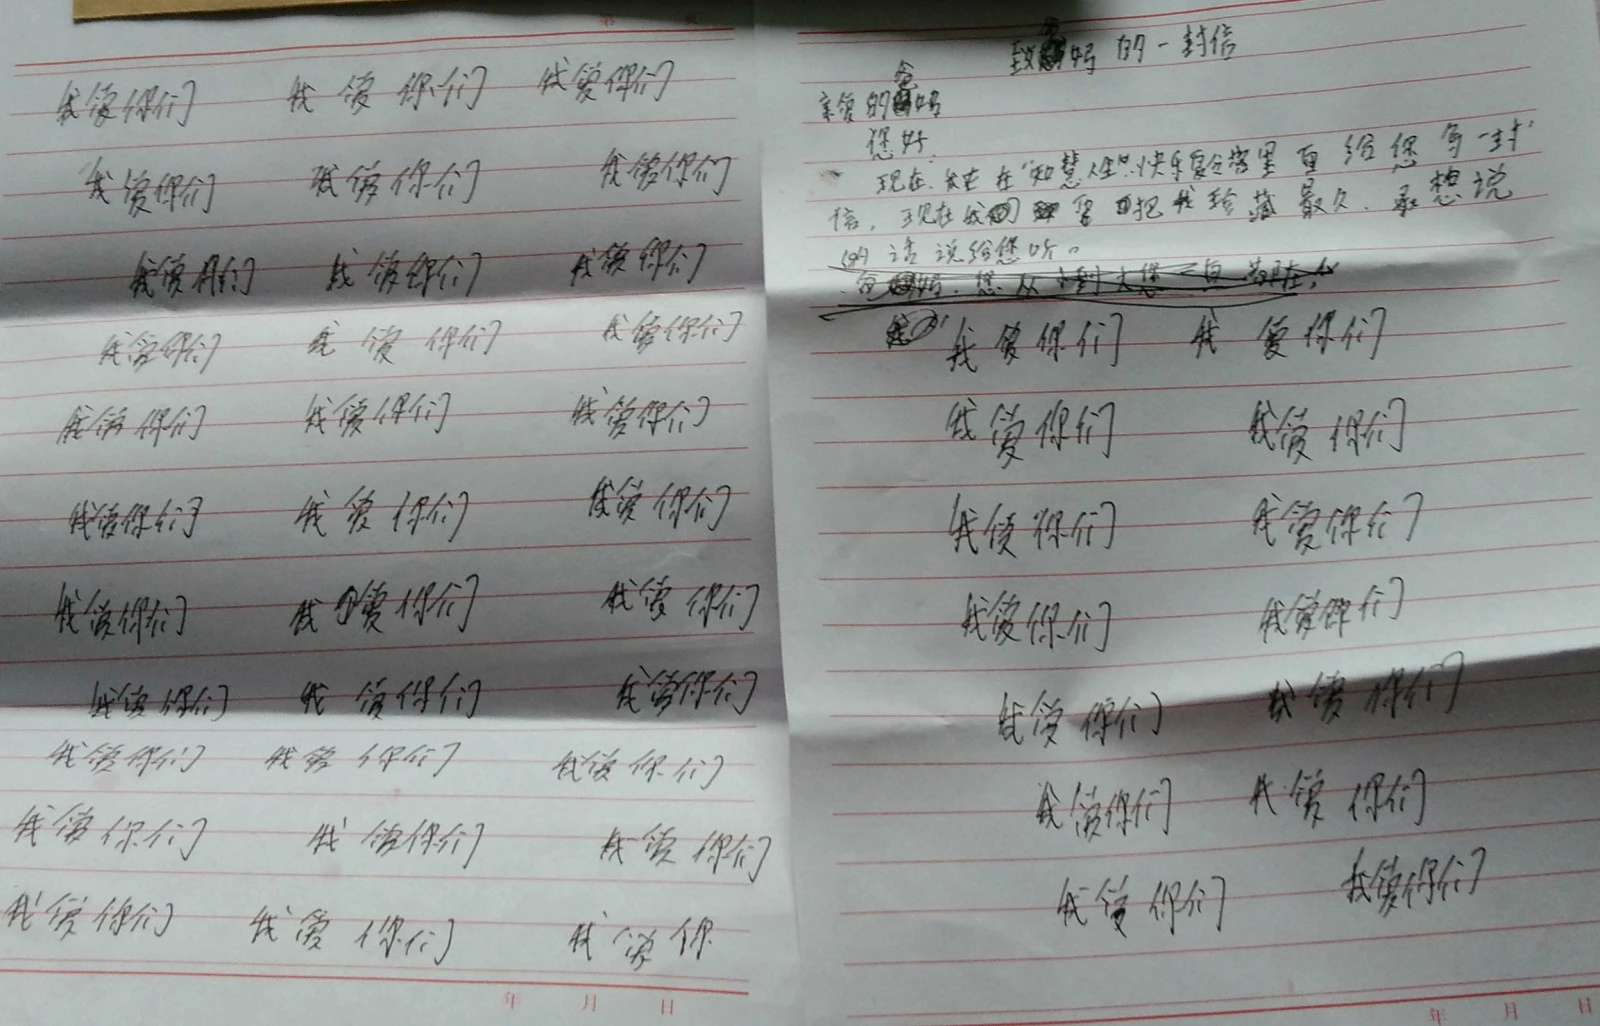 第 页
我爱你们 我爱你们 我爱你们
我爱你们 我爱你们 我爱你们
我爱你们 我爱你们 我爱你们
我爱你们 我爱你们 我爱你们
我爱你们 我爱你们 我爱你们
我爱你们 我爱你们 我爱你们
我爱你们 我爱你们 我爱你们
我爱你们 我爱你们 我爱你们
我爱你们 我爱你们 我爱你们
我爱你们 我爱你们 我爱你们
我爱你们 我爱你们 我爱你
年 月 日
致爸妈的一封信
亲爱的爸妈
您好
现在,我在"知慧人生"快乐夏令营里 给您写一封
信,现在我 要把我珍藏最久,最想说
的话说给您听。
爸妈,您从小到大您一直都在
我爱你们 我爱你们
我爱你们 我爱你们
我爱你们 我爱你们
我爱你们 我爱你们
我爱你们 我爱你们
我爱你们 我爱你们
我爱你们 我爱你们
年 月 日